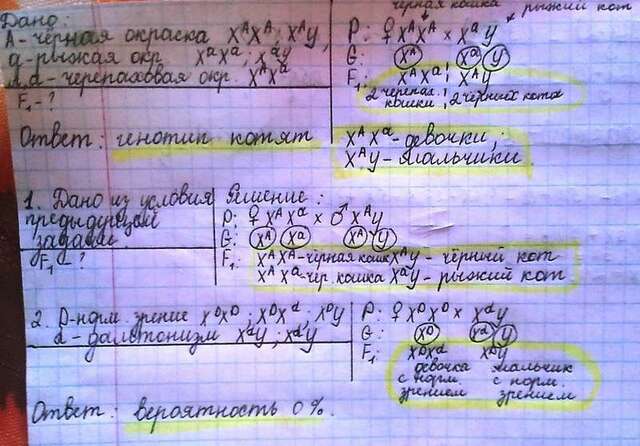 Дано:
A - чёрная окраска XᴬXᴬ; XᴬY,
a - рыжая окр. XᵃXᵃ; XᵃY
A, a - черепаховая окр. XᴬXᵃ
F₁ - ?
чёрная кошка рыжий кот
P: ♀ XᴬXᴬ × XᵃY
G: Xᴬ Xᵃ Y
F₁: XᴬXᵃ; XᴬY
2 черепах. кошки; 2 чёрных кота
Ответ: генотип котят XᴬXᵃ - девочки;
XᴬY - мальчики.
1. Дано из условия
предыдущей
задачи.
F₁ - ?
Решение:
P: ♀ XᴬXᵃ × ♂ XᴬY
G: Xᴬ Xᵃ Xᴬ Y
F₁: XᴬXᴬ - чёрная кошк XᴬY - чёрный кот
XᴬXᵃ - чер кошка XᵃY - рыжий кот
2. D - норм. зрение XᴰXᴰ; XᴰXᵈ; XᴰY
d - дальтонизм XᵈY; XᵈY
P: ♀ XᴰXᴰ × XᵈY
G: Xᴰ Xᵈ Y
F₁: XᴰXᵈ XᴰY
девочка мальчик
с норм. с норм.
зрением зрением
Ответ: вероятность 0%.